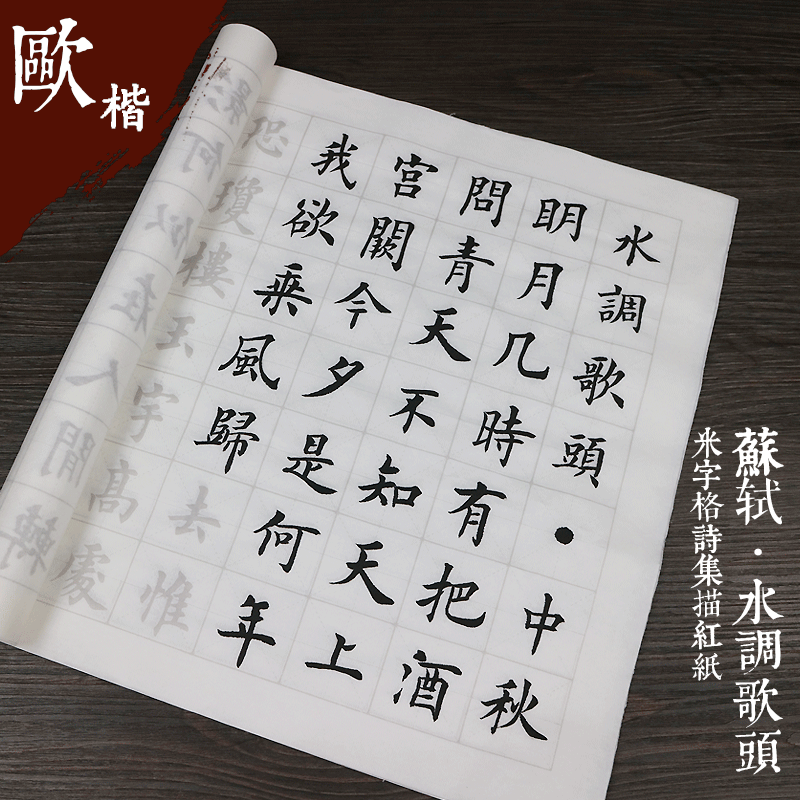 歐楷
水調歌頭•中秋
明月几時有把酒
問青天不知天上
宮闕今夕是何年
我欲乗風歸去惟
恐瓊樓玉宇高處
影何似在人間轉
蘇轼·水調歌頭
米字格詩集描紅紙